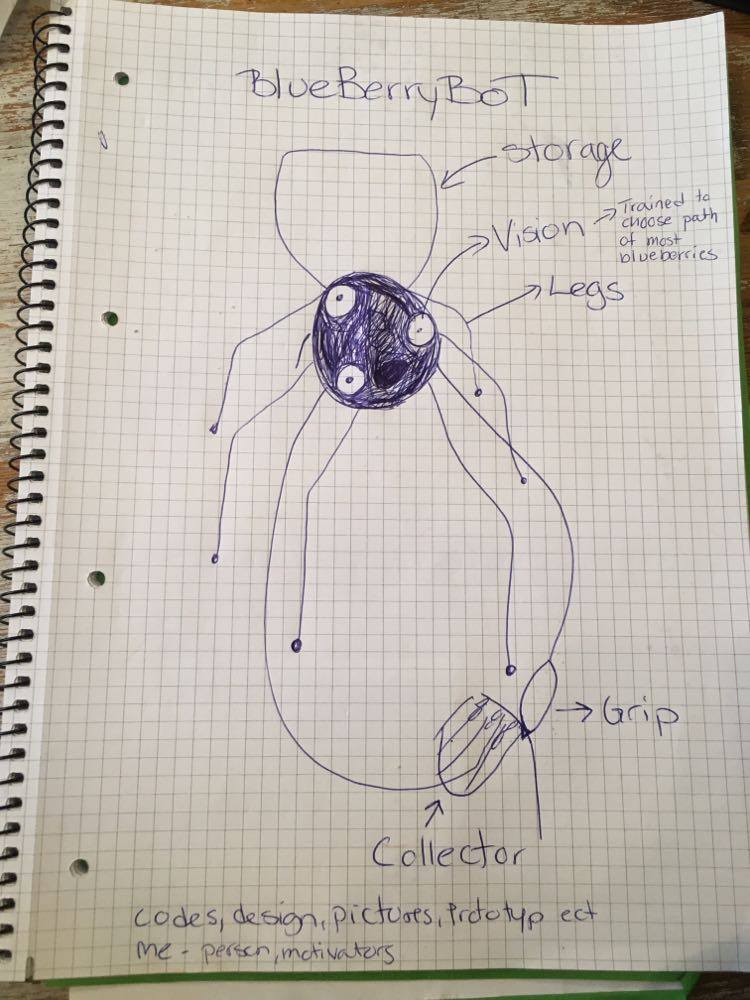 BlueBerryBoT
Storage
Vision
Trained to
choose path
of most
blueberries
Legs
Grip
Collector
codes, design, pictures, Prototyp ect
me - person, motivators